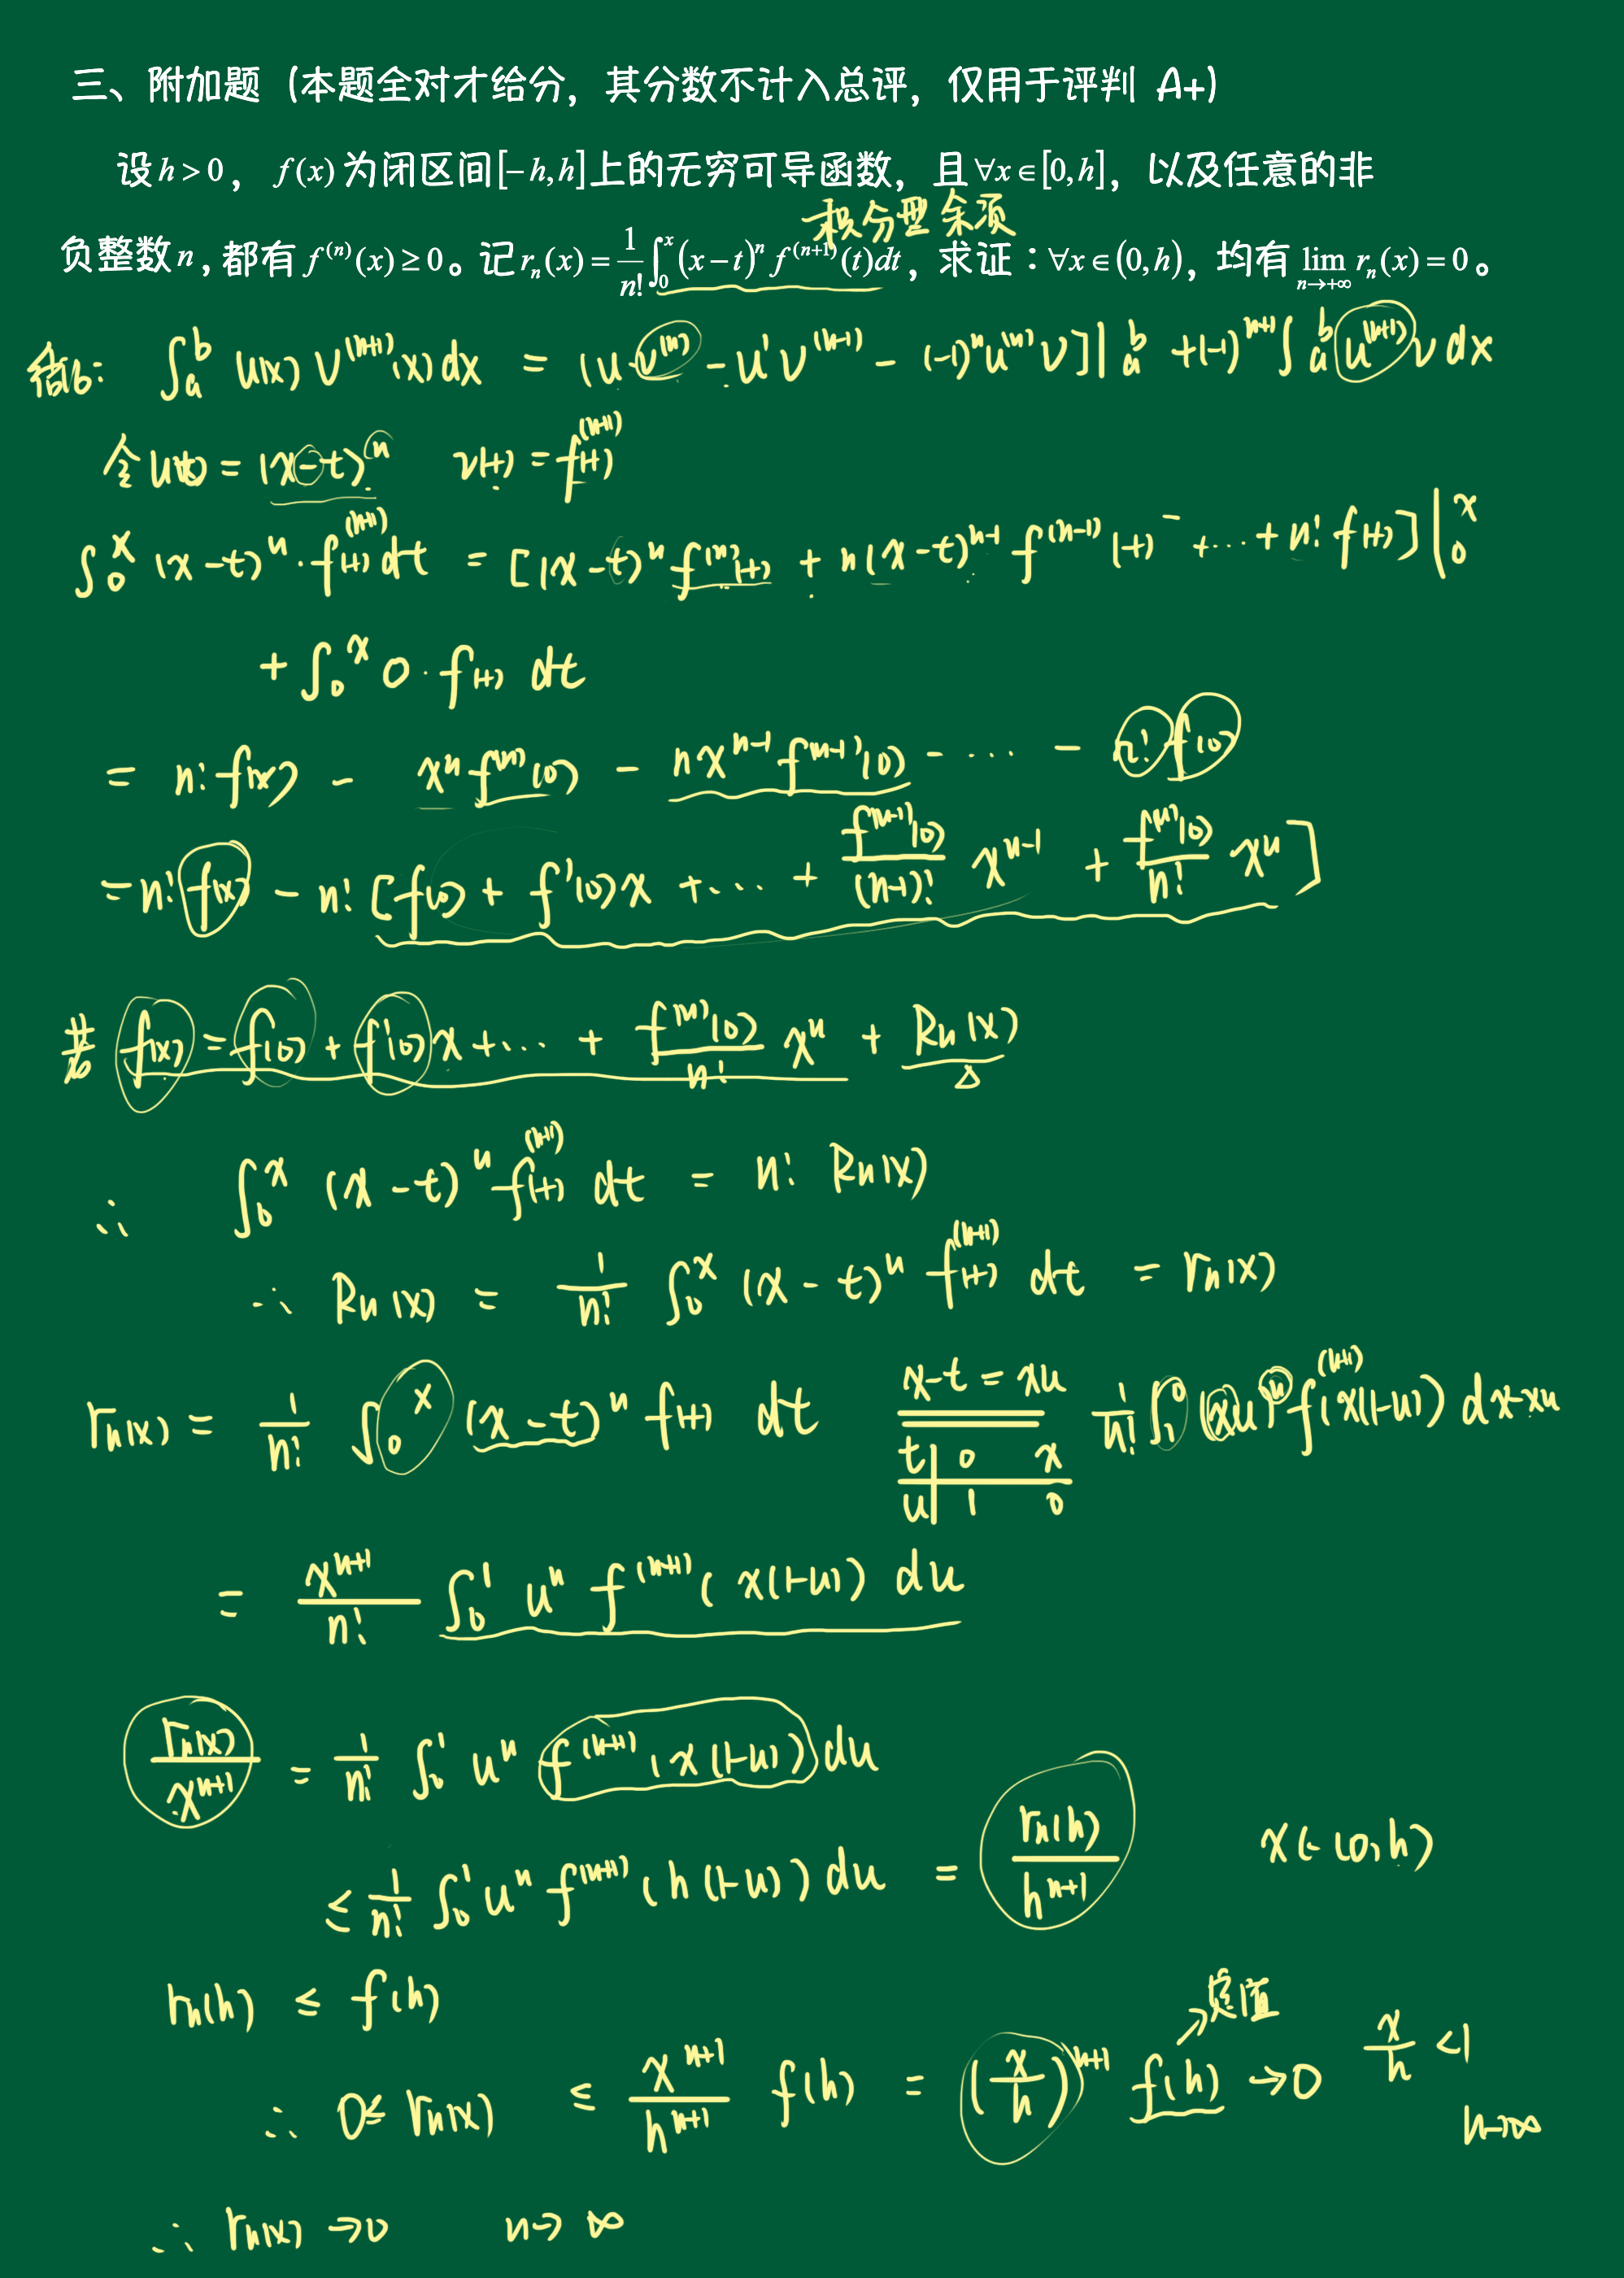 三、附加题（本题全对才给分，其分数不计入总评，仅用于评判 A+）
设 h>0，f(x) 为闭区间[-h,h]上的无穷可导函数，且 ∀x∈[0,h]，以及任意的非
积分型余项
负整数 n，都有 f^{(n)}(x)≥0。记 r_n(x)=\frac{1}{n!}∫_0^x (x-t)^n f^{(n+1)}(t)dt，求证：∀x∈(0,h)，均有 \lim_{n→+∞} r_n(x)=0。
∫_a^b u(x) v^{(n+1)}(x)dx = [u·v^{(n)} - u'v^{(n-1)} - (-1)^n u^{(n)} v]|_a^b + (-1)^{n+1} ∫_a^b u^{(n+1)} v dx
令 u(t) = (x-t)^n  v(t) = f^{(n+1)}(t)
∫_0^x (x-t)^n · f^{(n+1)}(t) dt = [(x-t)^n f^{(n)}(t) + n(x-t)^{n-1} f^{(n-1)}(t) + ... + n! f(t)]|_0^x
+ ∫_0^x 0·f(t) dt
= n! f(x) - x^n f^{(n)}(0) - n x^{n-1} f^{(n-1)}(0) - ... - n! f(0)
= n! f(x) - n! [f(0) + f'(0)x + ... + \frac{f^{(n-1)}(0)}{(n-1)!} x^{n-1} + \frac{f^{(n)}(0)}{n!} x^n]
f(x) = f(0) + f'(0)x + ... + \frac{f^{(n)}(0)}{n!} x^n + R_n(x)
∴ ∫_0^x (x-t)^n f^{(n+1)}(t) dt = n! R_n(x)
∴ R_n(x) = \frac{1}{n!} ∫_0^x (x-t)^n f^{(n+1)}(t) dt = r_n(x)
r_n(x) = \frac{1}{n!} ∫_0^x (x-t)^n f(t) dt  x-t=xu  \frac{1}{n!} ∫_1^0 (xu)^n f^{(n+1)}(x(1-u)) d x-xu
t | 0 x
u | 1 0
= \frac{x^{n+1}}{n!} ∫_0^1 u^n f^{(n+1)}(x(1-u)) du
\frac{r_n(x)}{x^{n+1}} = \frac{1}{n!} ∫_0^1 u^n f^{(n+1)}(x(1-u)) du
≤ \frac{1}{n!} ∫_0^1 u^n f^{(n+1)}(h(1-u)) du = \frac{r_n(h)}{h^{n+1}}  x∈(0,h)
r_n(h) ≤ f(h)
定值
∴ 0≤ r_n(x) ≤ \frac{x^{n+1}}{h^{n+1}} f(h) = (\frac{x}{h})^{n+1} f(h) →0  \frac{x}{h} <1
n→∞
∴ r_n(x) →0  n→∞